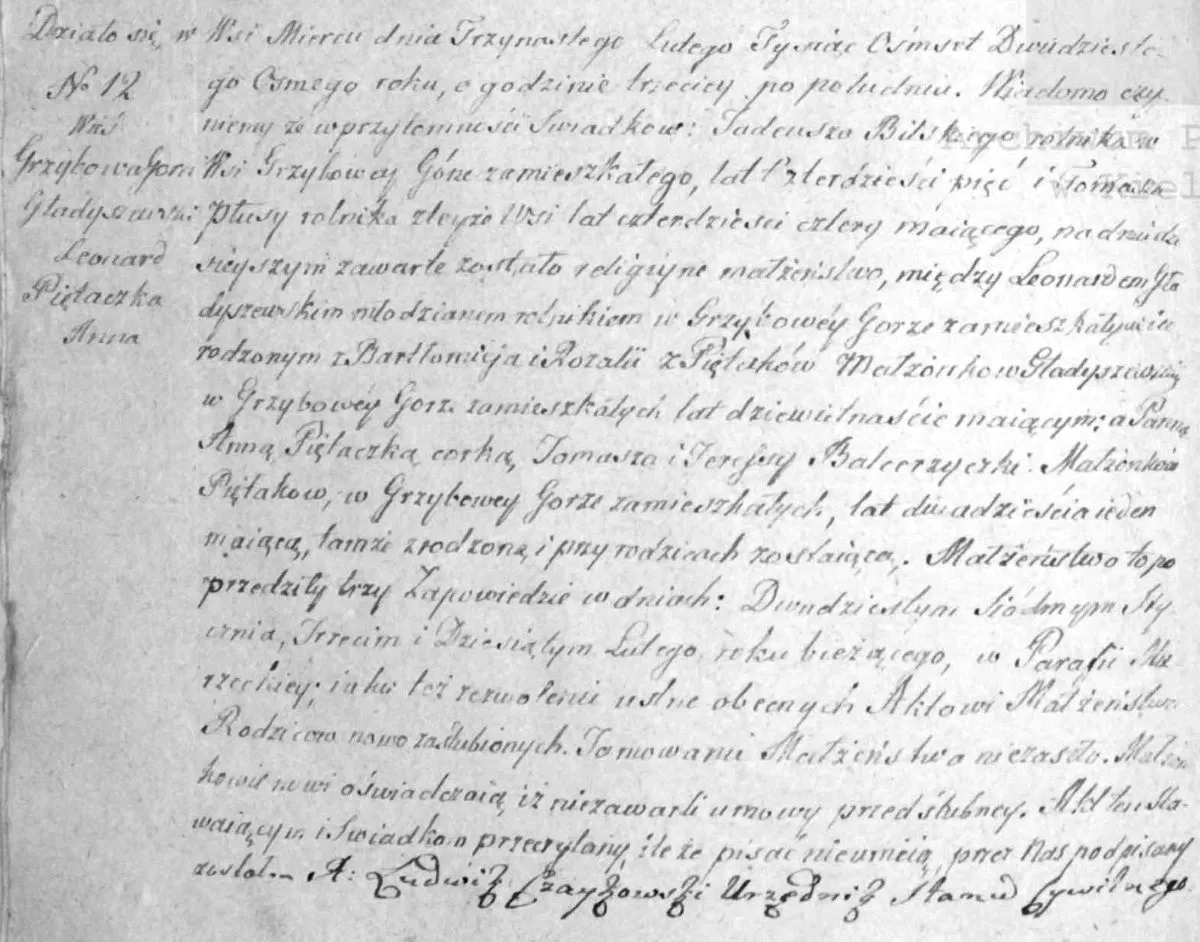 Działo się w Wsi Miercu dnia Trzynastego Lutego Tysiąc Ośmset Dwudzieste-
No 12
go Osmego roku, o godzinie trzeciey po południu. Wiadomo czy-
Wieś
niemy że w przytomności Swiadkow: Tadeusza Bilskiego rolnika w
Grzybowa Gora
Wsi Grzybowey Górze zamieszkałego, lat Czterdzieści pięć i Tomasza
Gładyszewski
Płusy rolnika zteyże Wsi lat czterdzieści cztery maiącego, na dniu dzi
Leonard
sieyszym zawarte zostało religiyne małżeństwo, między Leonardem Gła
Piętaczka
dyszewskim młodzianem rolnikiem w Grzybowéy Gorze zamieszkałym u
Anna
rodzonym z Bartłomieja i Rozalii z Piętaków Małżonkow Gładyszewskich
w Grzybowéy Gorze zamieszkałych lat dziewietnaście maiącym; a Panną
Anną Piętaczką corką Tomasza i Teressy Balcerzyczki Małżonków
Piętakow, w Grzybowey Gorze zamieszkałych, lat dwadzieścia ieden
maiącą, tamże zrodzoną i przy rodzicach zostaiącą. Małżeństwo to po
przedziły trzy Zapowiedzie w dniach: Dwudziestym siódmym Sty-
cznia, Trzecim i Dziesiątym Lutego roku bieżącego, w Parafii Mie
rzeckiey; iako też zezwolenie ustne obecnych Aktowi Małżeństwa
Rodzicow nowozaslubionych. Tamowanie Małżeństwa niezaszło. Małżon
kowie nowi oświadczaią iż niezawarli umowy przedślubney. Akt ten sta-
waiącym i Swiadkom przeczytany, ile że pisać nieumieią przez Nas podpisany
został. X: Ludwik Czaykowski Urzędnik Stanu Cywilnego.